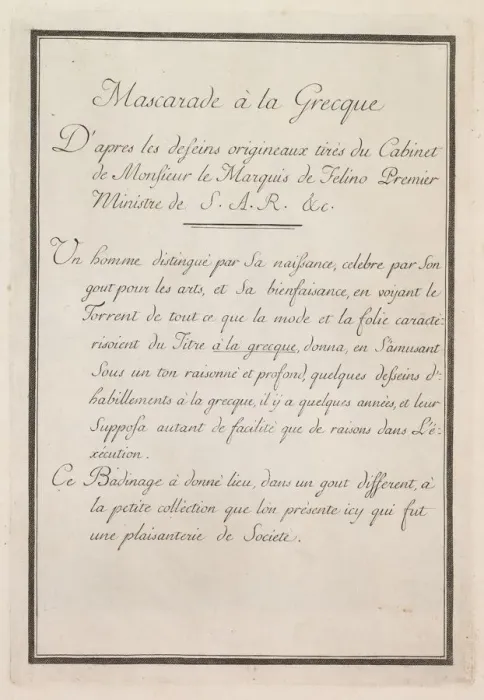 Mascarade à la Grecque
D'apres les deſeins origineaux tirés du Cabinet
de Monſieur le Marquis de Felino Premier
Ministre de S. A. R. &c.
Un homme distingué par Sa naiſsance, celebre par Son
gout pour les arts, et Sa bienfaisance, en voyant le
Torrent de tout ce que la mode et la folie caracté-
risoient du Titre à la grecque, donna, en S'amusant
Sous un ton raisonné et profond, quelques deſseins d'-
habillements à la grecque, il y a quelques années, et leur
Supposa autant de facilité que de raisons dans L'é-
xécution.
Ce Badinage à donné lieu, dans un gout different, à
la petite colléction que l'on présente icy qui fut
une plaisanterie de Societé.